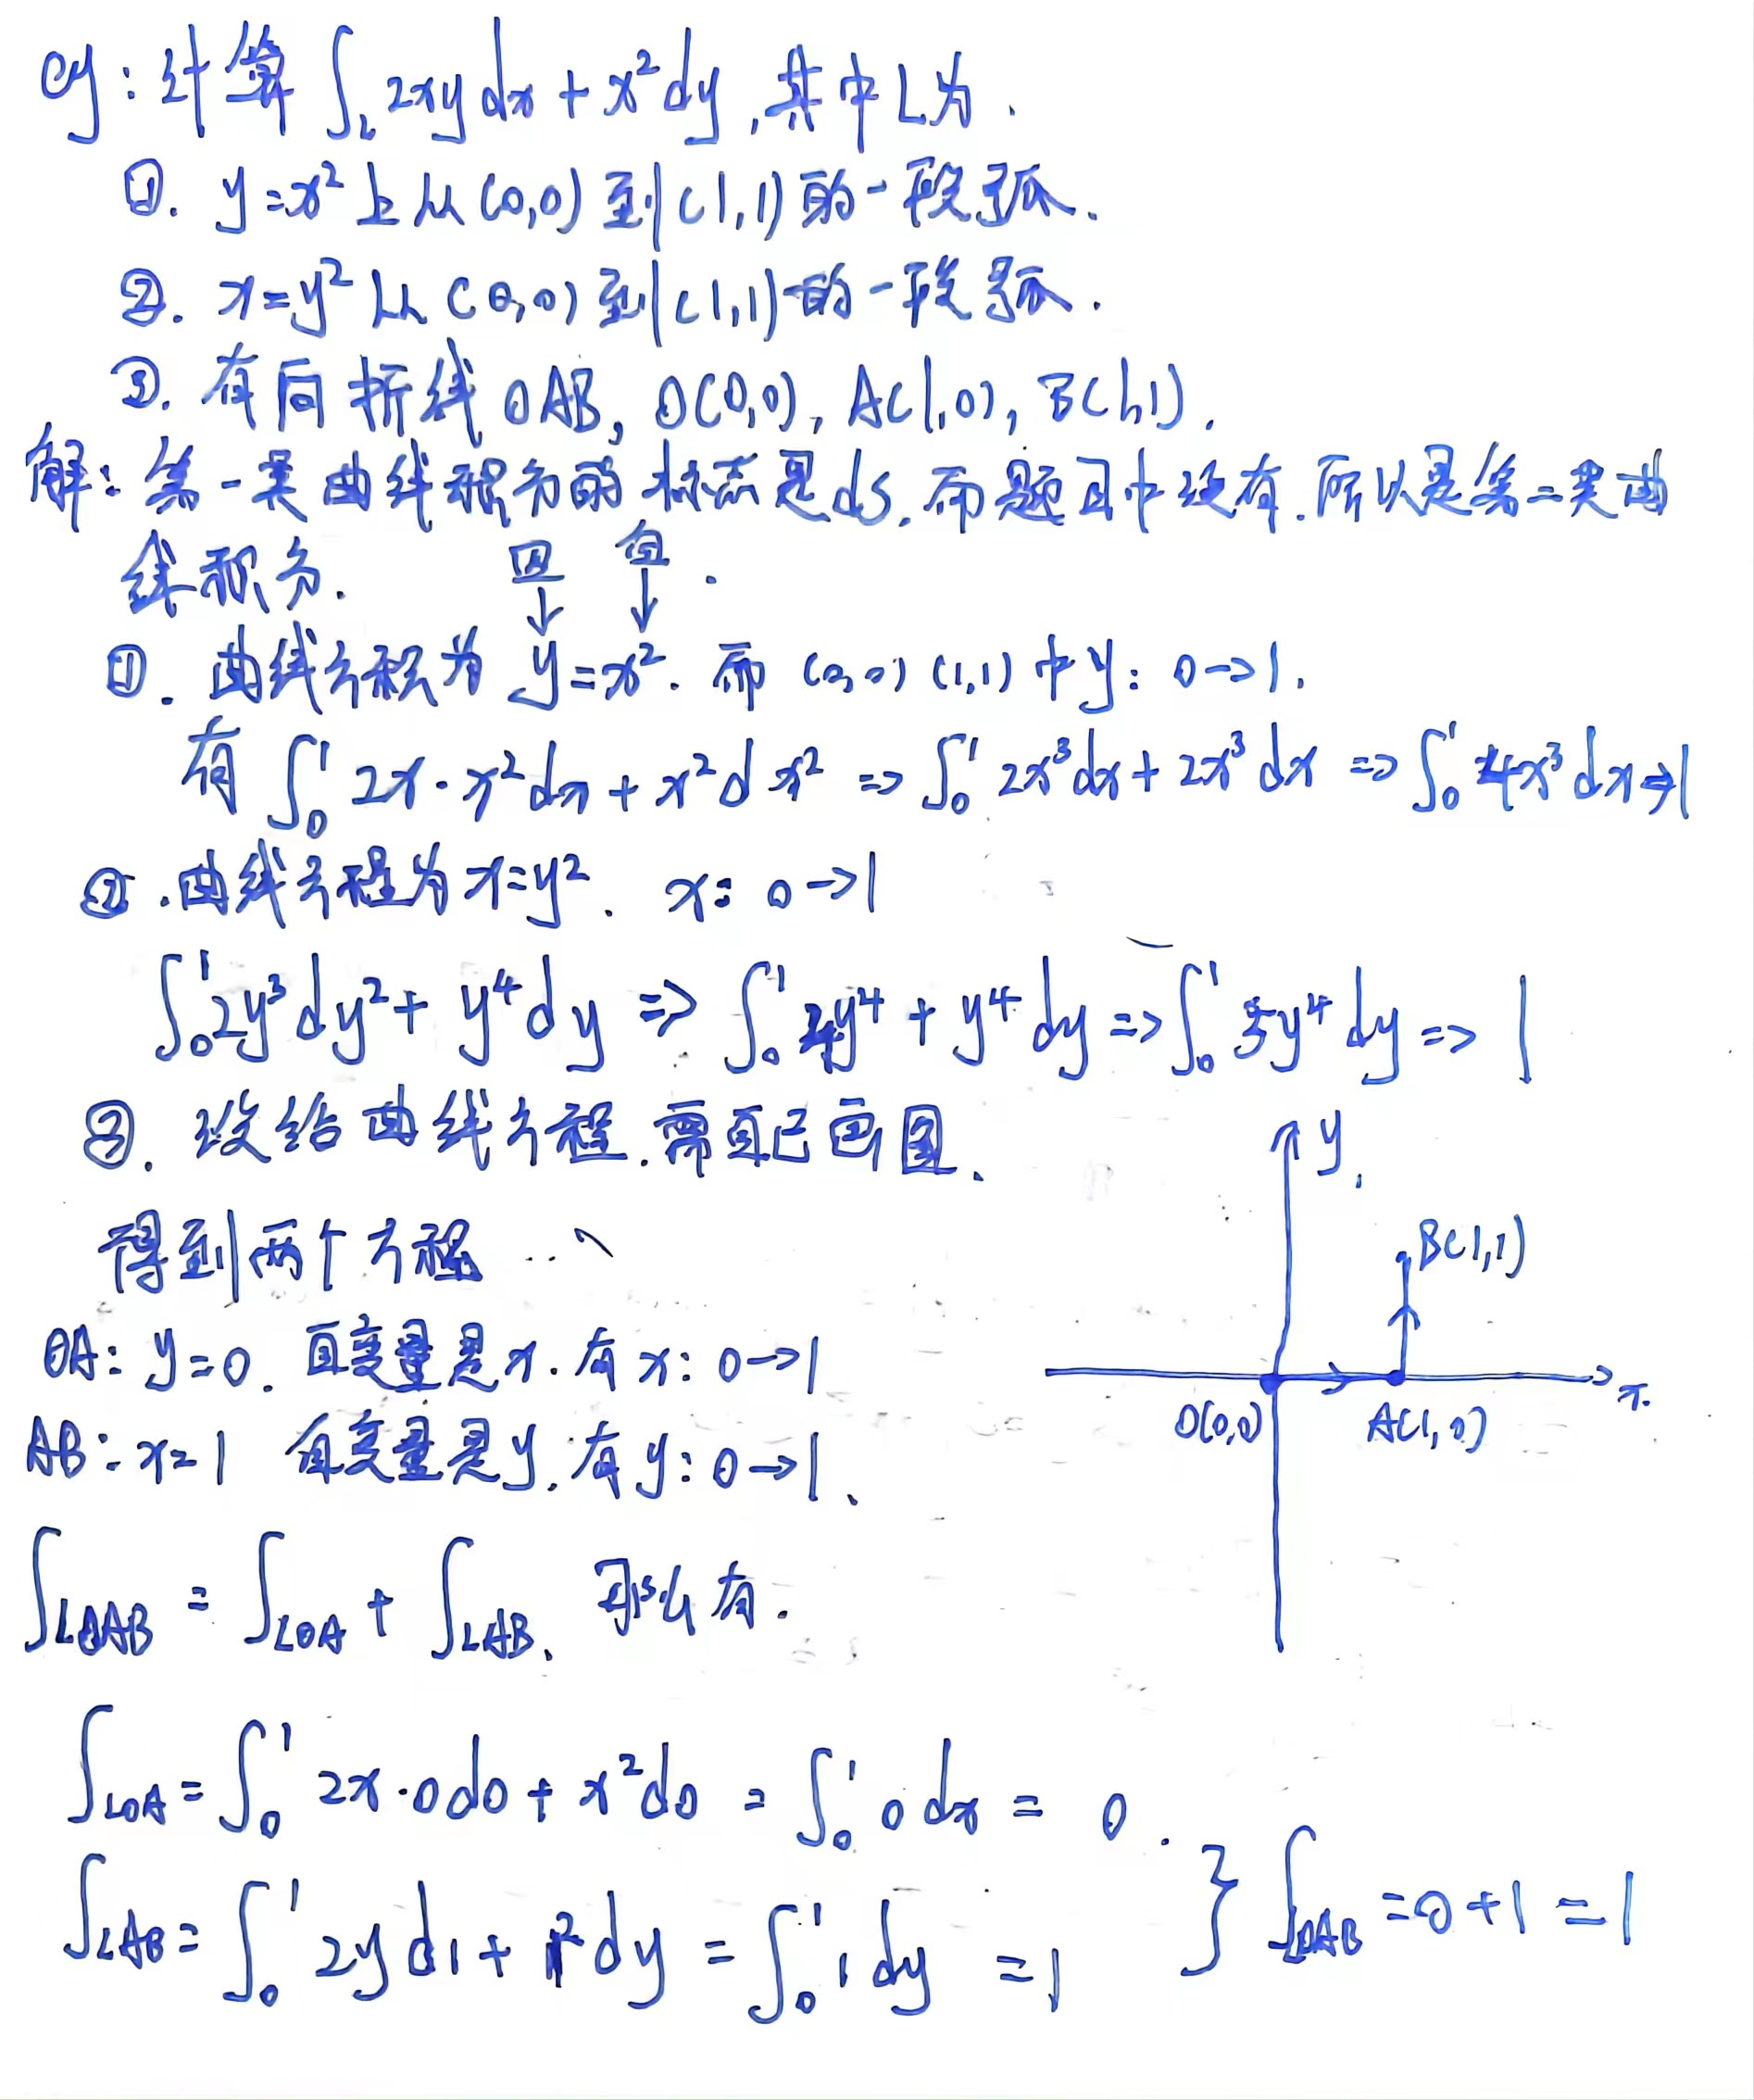 eg：计算 ∫_L 2xy dx + x² dy，其中L为.
①. y=x² 上从(0,0)到(1,1)的一段弧.
②. x=y² 从(0,0)到(1,1)的一段弧.
③. 有向折线OAB, O(0,0), A(1,0), B(1,1).
解：第一类曲线积分的标志是ds.而题目中没有.所以是第二类曲
线积分.
因 自.
↓ ↓
①. 曲线方程为 y=x². 而 (0,0) (1,1) 中y: 0→1.
有 ∫₀¹ 2x·x²dx + x²dx² => ∫₀¹ 2x³dx + 2x³dx => ∫₀¹ 4x³dx⇒1
②.曲线方程为x=y². x: 0→1
∫₀¹ 2y³dy² + y⁴dy => ∫₀¹ 4y⁴ + y⁴ dy => ∫₀¹ 5y⁴dy => 1
③. 没给曲线方程.需自己画图.
得到两个方程
OA: y=0. 自变量是x. 有x: 0→1
AB: x=1 自变量是y. 有y: 0→1.
∫_LOAB = ∫_LOA + ∫_LAB. 那么有.
∫_LOA = ∫₀¹ 2x·0d0 + x²d0 = ∫₀¹ 0 dx = 0.
∫_LAB = ∫₀¹ 2yd1 + 1²dy = ∫₀¹ 1 dy = 1
} ∫_LOAB = 0+1 = 1
y
B(1,1)
x
O(0,0)
A(1,0)